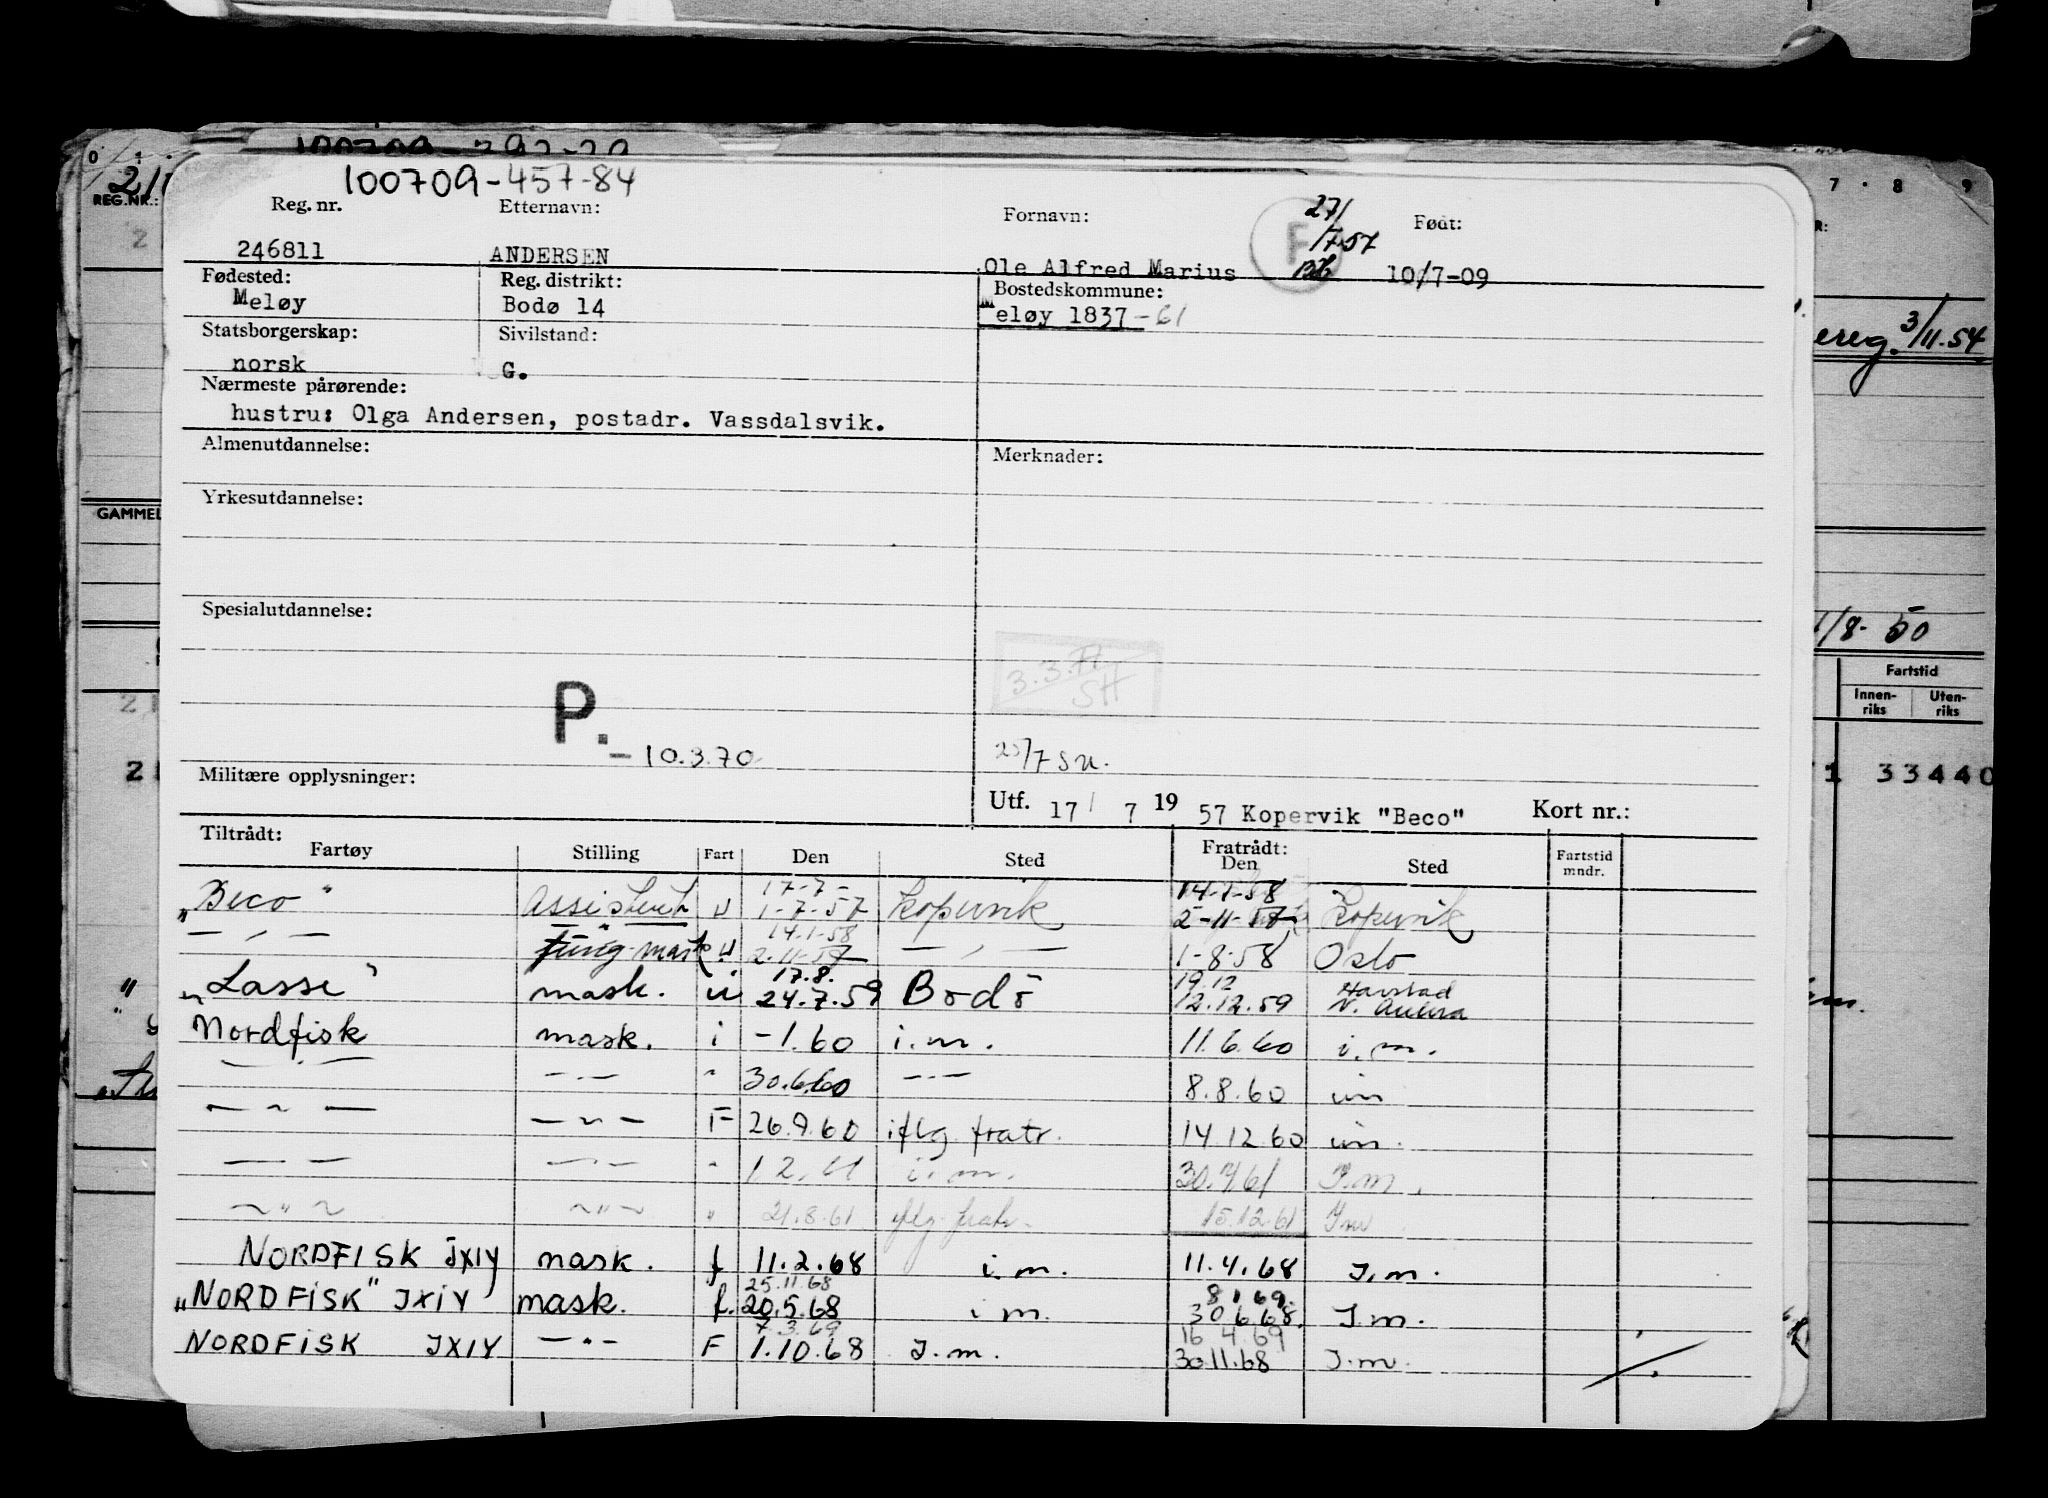 100709-457-84
Reg. nr. Etternavn: Fornavn: Født:
27/
/7-57
246811 ANDERSEN Ole Alfred Marius F 10/7-09
Fødested: Reg. distrikt: Bostedskommune:
Meløy Bodø 14 Meløy 1837-61
Statsborgerskap: Sivilstand:
norsk G.
Nærmeste pårørende:
hustru: Olga Andersen, postadr. Vassdalsvik.
Almenutdannelse: Merknader:
Yrkesutdannelse:
Spesialutdannelse:
P.
-10.3.70
Militære opplysninger:
Utf. 17/ 7 19 57 Kopervik "Beco" Kort nr.:
Tiltrådt: Fratrådt:
Fartøy Stilling Fart Den Sted Den Sted Fartstid mndr.
17-7- 14-1-58
"Beco" Assistent u 1-7-57 Kopervik 2-11-57 Kopervik
14.1-58
— " — fung. mask u 2.11.57 — " — 1-8-58 Oslo
17.8. 19.12 Harstad
"Lasse" mask. u 24.7.59 Bodö 12.12.59
Nordfisk mask. i -1.60 i.m. 11.6.60 i.m.
— " — — " — " 30.6.60 — " — 8.8.60 im
— " — — " — F 26.9.60 iflg. fratr. 14 12 60 im.
— — — " — " 1 2.61 i.m. 30.4.61 I.m.
— " — — " — " 21.8.61 iflg. fratr. 15.12.61 Im
NORDFISK JXIY mask. f 11.2.68 i.m. 11.4.68 I.m.
25.11.68 8 1 69.
"NORDFISK" JXIY mask. f. 20.5.68 i m. 30 6.68. I.m.
7.3.69 16 4.69
NORDFISK JXIY — " — F 1.10.68 I.m. 30.11.68 I.m.
REG.NR.:
GAMMEL
3/11.54
/8-50
Fartstid
Innen-riks Uten-riks
33440